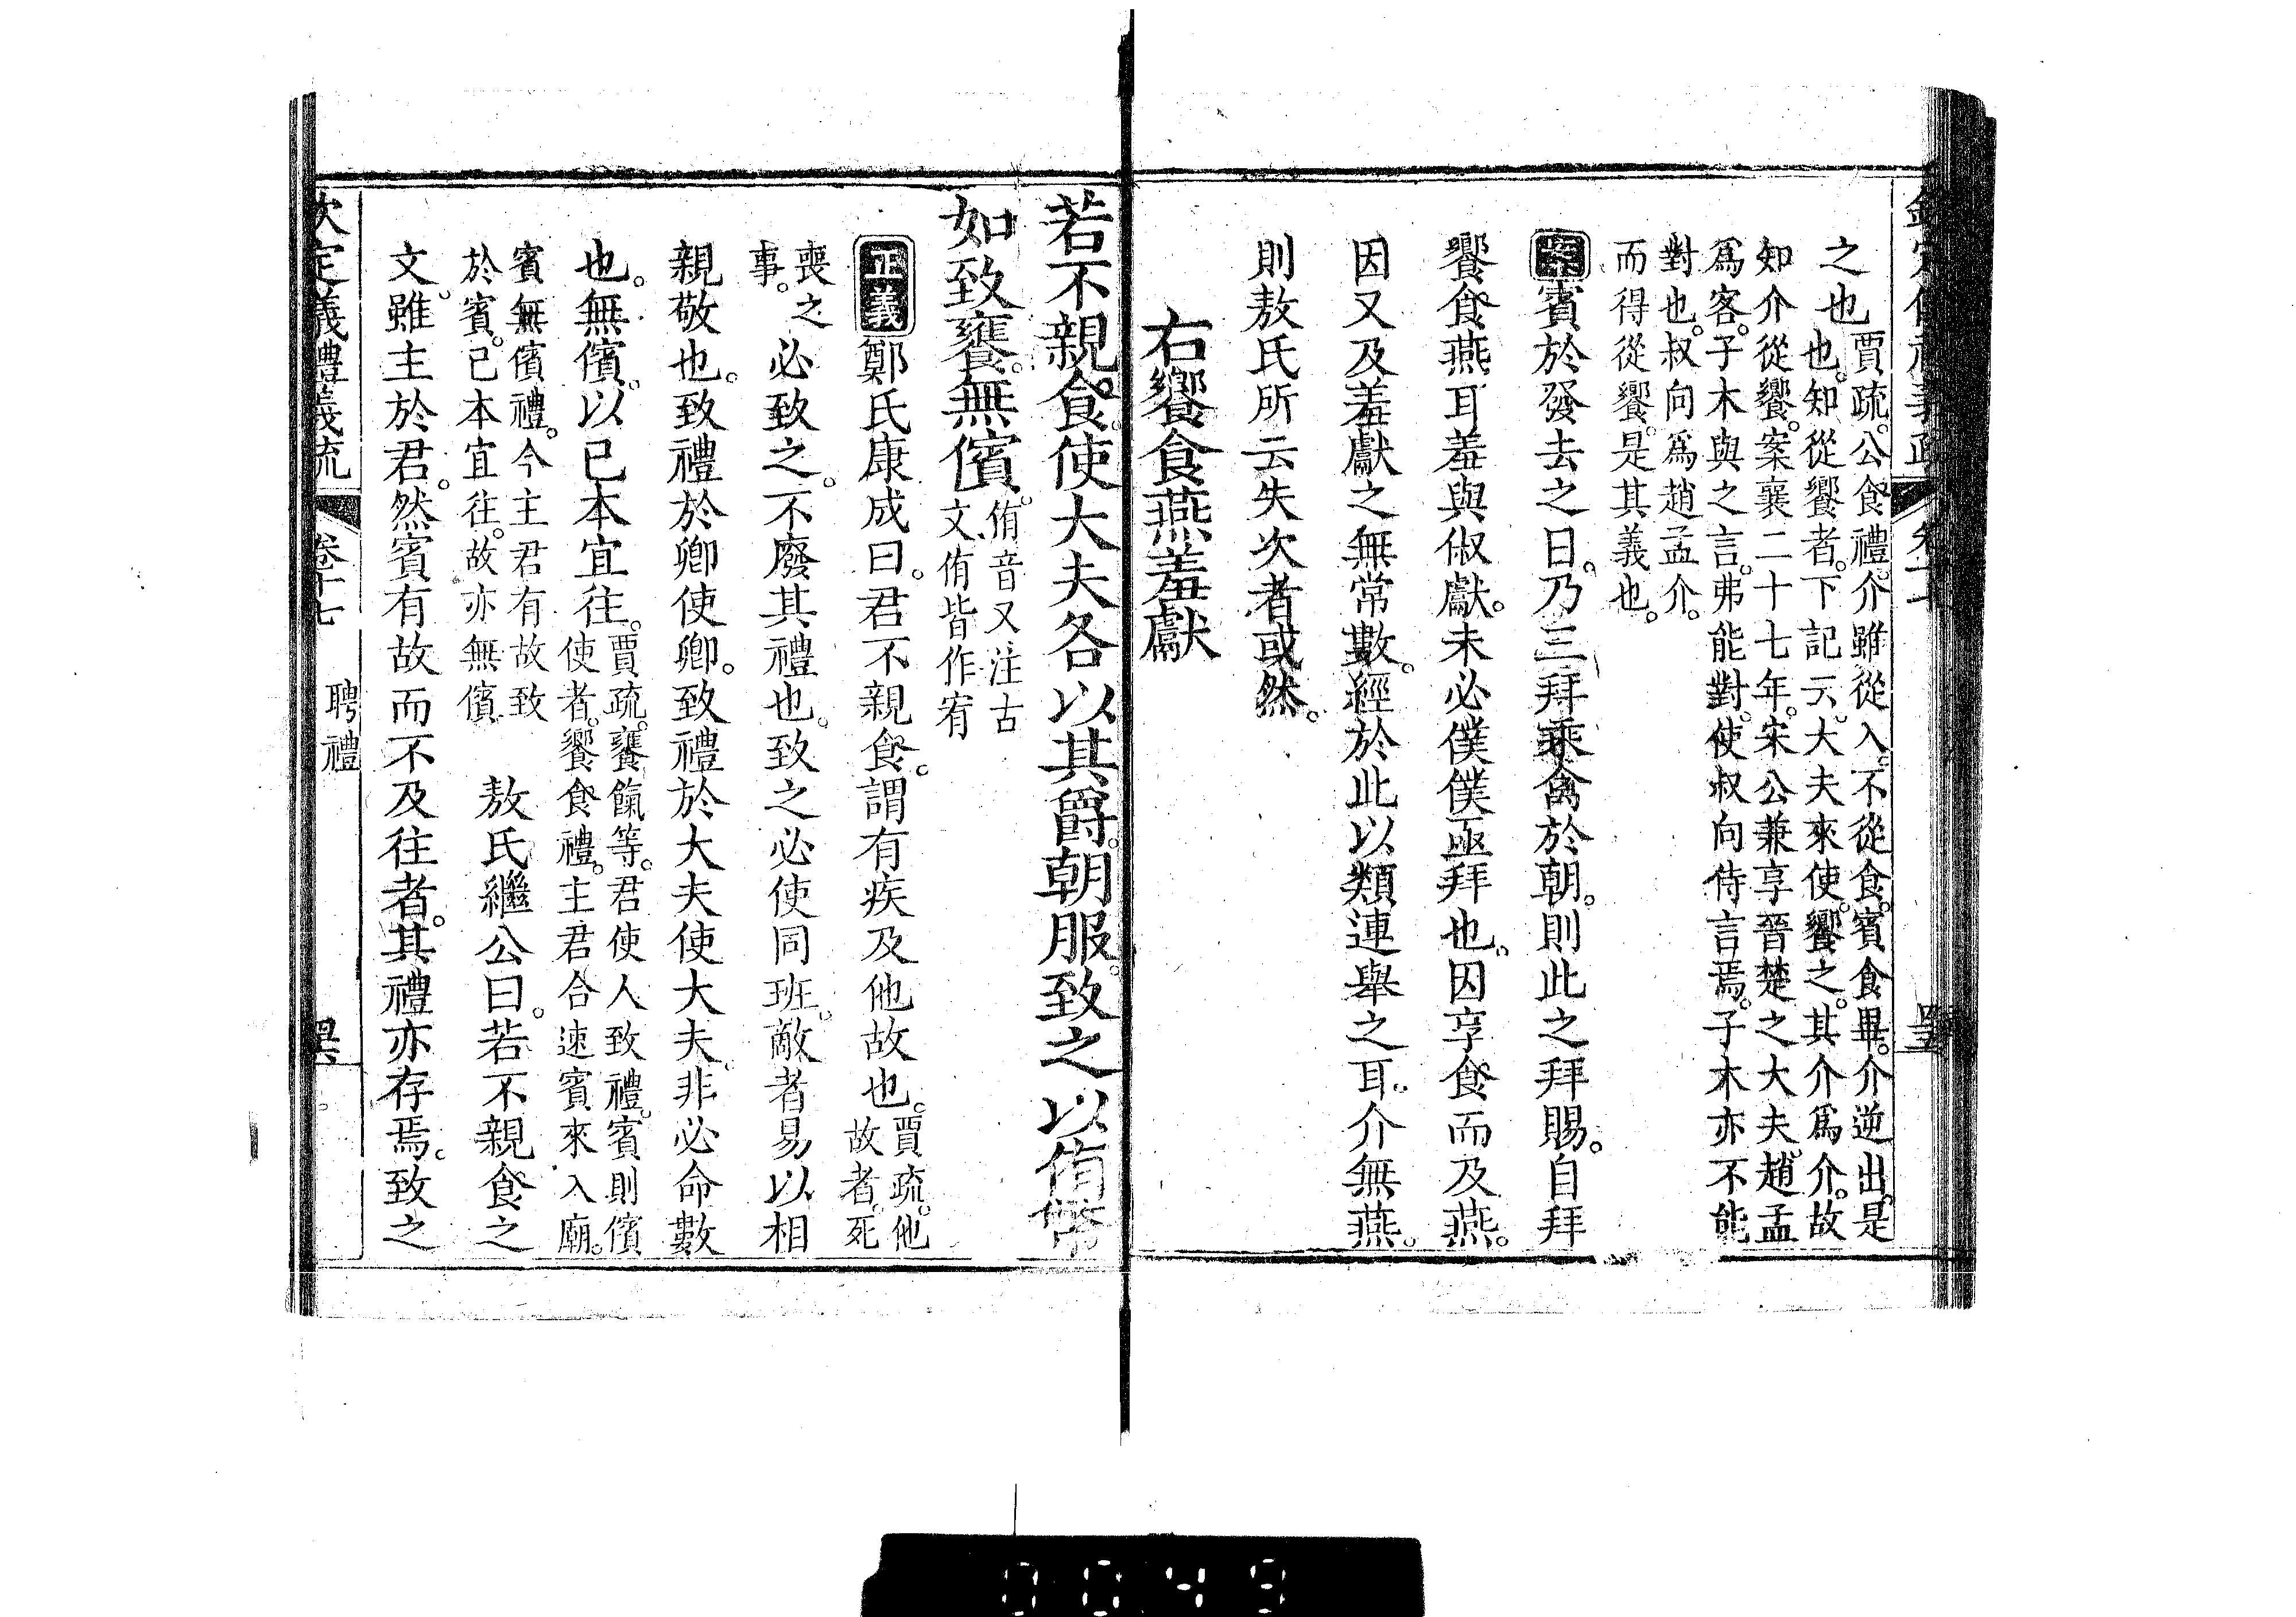 之也賈疏。公食禮。介雖從入。不從食。賓食畢。介逆出。是
也。知從饗者。下記云。大夫來使。饗之。其介爲介。故
知介從饗。案襄二十七年。宋公兼享晉楚之大夫。趙孟
爲客。子木與之言。弗能對。使叔向侍言焉。子木亦不能
對也。叔向爲趙孟介。
而得從饗。是其義也。
案賓於發去之日。乃三拜乘禽於朝。則此之拜賜。自拜
饗食燕耳。羞與俶獻。未必僕僕亟拜也。因享食而及燕。
因又及羞獻之無常數。經於此以類連舉之耳。介無燕。
則敖氏所云失次者或然。
右饗食燕羞獻
若不親食。使大夫各以其爵。朝服。致之以侑幣
如致饔。無儐。侑音又注古
文侑皆作宥
正義鄭氏康成曰。君不親食。謂有疾及他故也。賈疏。他
故者。死
喪之
事。必致之。不廢其禮也。致之必使同班。敵者易以相
親敬也。致禮於卿使卿。致禮於大夫使大夫。非必命數
也。無儐。以已本宜往。賈疏。饔餼等。君使人致禮。賓則儐
使者。饗食禮。主君合速賓來入廟。
賓無儐禮。今主君有故致
於賓。已本宜往。故亦無儐
敖氏繼公曰。若不親食之
文。雖主於君。然賓有故而不及往者。其禮亦存焉。致之
欽定義禮義疏 卷十七 聘禮